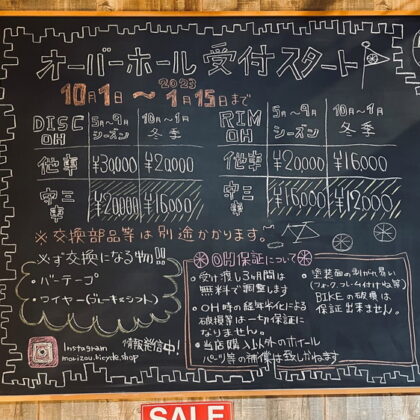 オーバーホール 受付スタート
2023
10月1日 〜 1月15日まで
DISC OH 5月〜9月 シーズン 10月〜1月 冬季
他車 ¥30,000 ¥20,000
¥20,000 ¥16,000
RIM OH 5月〜9月 シーズン 10月〜1月 冬季
他車 ¥20,000 ¥16,000
¥16,000 ¥12,000
※交換部品等は別途かかります。
必ず交換になる物!!
・バーテープ
・ワイヤー(ブレーキ&シフト)
Instagram 情報発信中!
OH保証について
・受け渡し3ヶ月間は
無料で調整します
・OH時の経年劣化による
破損等は一切保証に
なりません。
・当店購入以外のホイール
パーツ等の補償は致しかねます
・塗装面の剥がれ易い
(フォーク,フレーム付け根等)
BIKEの破損は
保証出来ません。
SALE